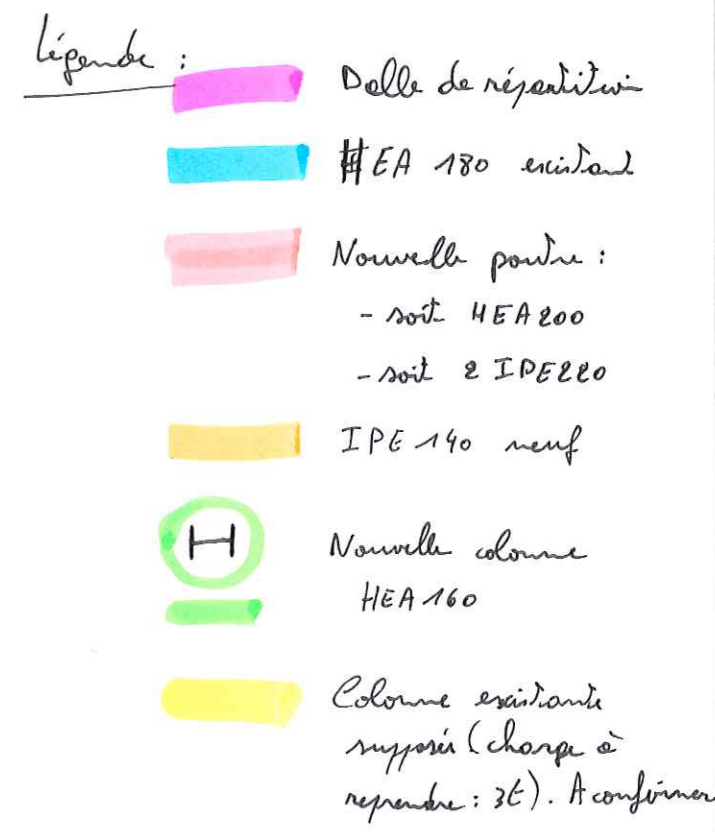 Légende :
Dalle de répartition
HEA 180 existant
Nouvelle poutre :
- soit HEA200
- soit 2 IPE220
IPE 140 neuf
H
Nouvelle colonne
HEA 160
Colonne existante
supposée (charge à
reprendre : 3t). A confirmer